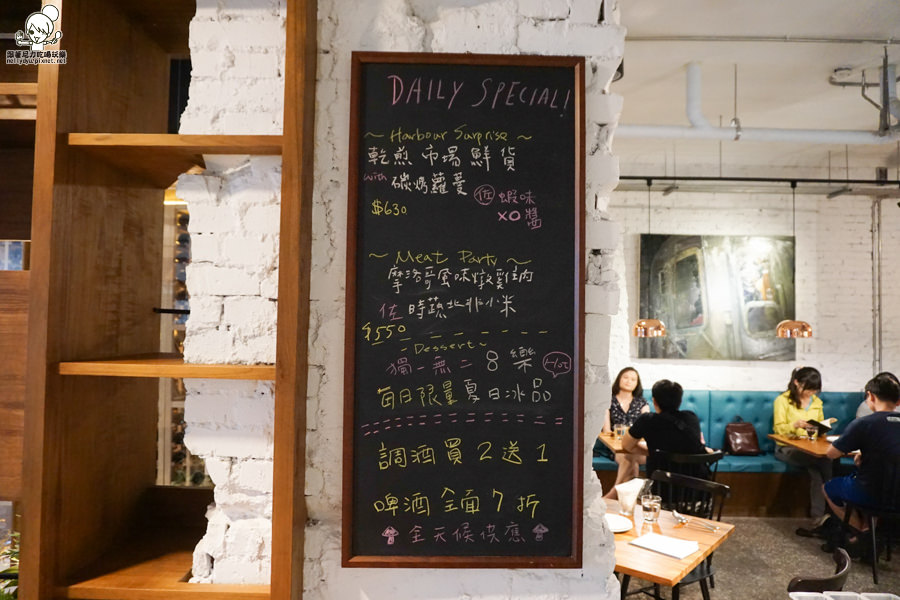 跟著尼力吃喝玩樂
nellydyu.pixnet.net
DAILY SPECIAL!
~ Harbour Surprise ~
乾煎市場鮮貨
with 碳烤蘿蔓
佐蝦味
$630
XO醬
~ Meat Party ~
摩洛哥風味燉雞肉
佐時蔬北非小米
$550
- Dessert ~
獨一無二 8 樂
Hot
每日限量夏日冰品
調酒買2送1
啤酒全面7折
全天候供應